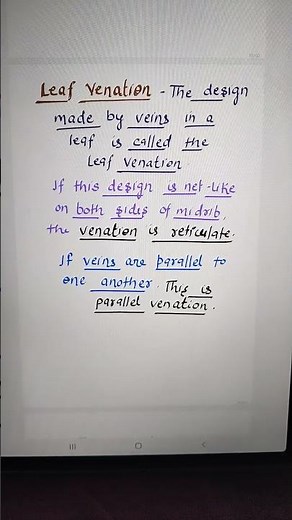 Leaf Venation - The design
made by veins in a
leaf is called the
Leaf Venation
If this design is net-like
on both sides of midrib,
the venation is reticulate.
If veins are parallel to
one another. This is
parallel venation.